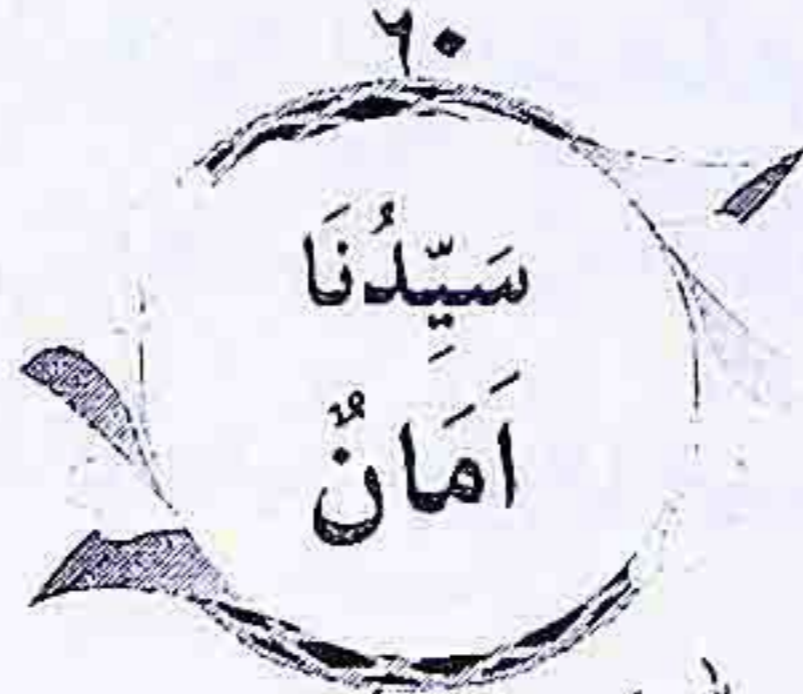 ٦٠
سَيِّدُنَا
اَمَانٌ